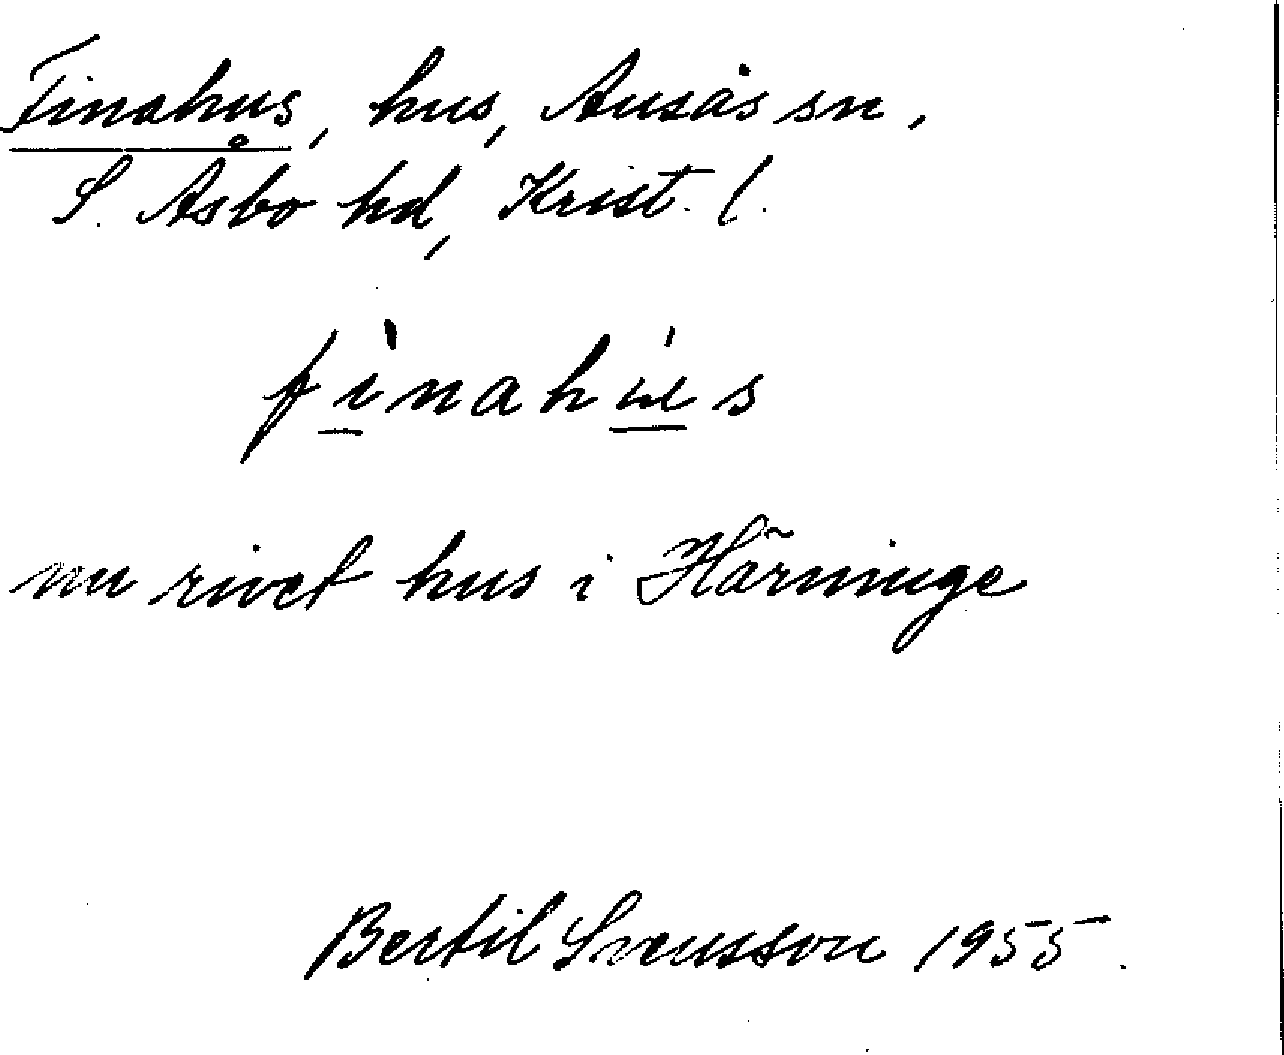 Finahus, hus, Ausås sn,
S. Åsbo hd, Krist. l.
fìnahús
nu rivet hus i Härninge
Bertil Svensson 1955.